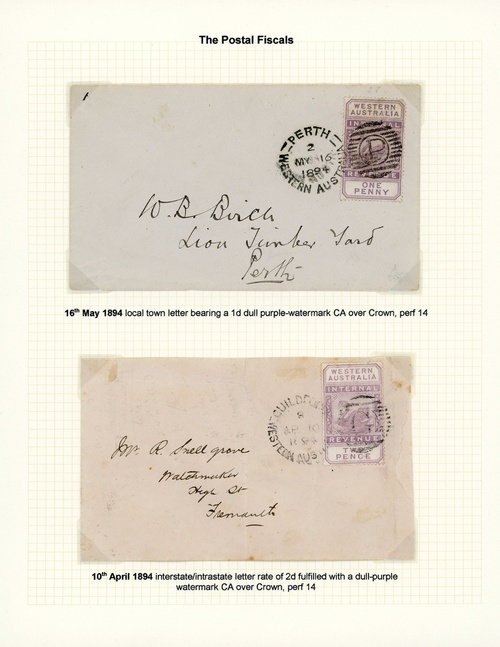 The Postal Fiscals
WESTERN
AUSTRALIA
INTERNAL
REVENUE
ONE
PENNY
PERTH
2
MY 16
1894
WESTERN AUSTRALIA
W. B. Birch
Lion Timber Yard
Perth
16th May 1894 local town letter bearing a 1d dull purple-watermark CA over Crown, perf 14
WESTERN
AUSTRALIA
INTERNAL
REVENUE
TWO
PENCE
GUILDFO
8
AP 10
1894
WESTERN AUS
Mr. R. Snellgrove
Watchmaker
High St
Fremantle
10th April 1894 interstate/intrastate letter rate of 2d fulfilled with a dull-purple
watermark CA over Crown, perf 14